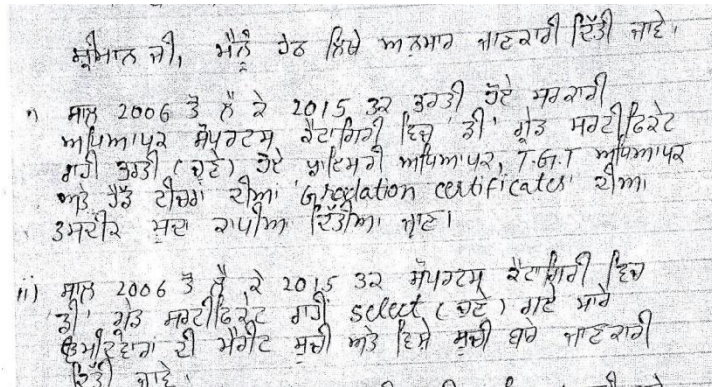 ਸ਼੍ਰੀਮਾਨ ਜੀ, ਮੈਨੂੰ ਹੇਠ ਲਿਖੇ ਅਨੁਸਾਰ ਜਾਣਕਾਰੀ ਦਿੱਤੀ ਜਾਵੇ।
i) ਸਾਲ 2006 ਤੋਂ ਲੈ ਕੇ 2015 ਤਕ ਭਰਤੀ ਹੋਏ ਸਰਕਾਰੀ
ਅਧਿਆਪਕ ਸਪੋਰਟਸ ਕੈਟਾਗਿਰੀ ਵਿਚ 'ਡੀ' ਗ੍ਰੇਡ ਸਰਟੀਫਿਕੇਟ
ਰਾਹੀ ਭਰਤੀ (ਚੁਣੇ) ਹੋਏ ਪ੍ਰਾਇਮਰੀ ਅਧਿਆਪਕ, T.G.T ਅਧਿਆਪਕ
ਅਤੇ ਹੈੱਡ ਟੀਚਰਾਂ ਦੀਆਂ 'Gradation certificates' ਦੀਆਂ
ਤਸਦੀਕ ਸ਼ੁਦਾ ਕਾਪੀਆਂ ਦਿੱਤੀਆਂ ਜਾਣ।
ii) ਸਾਲ 2006 ਤੋਂ ਲੈ ਕੇ 2015 ਤਕ ਸਪੋਰਟਸ ਕੈਟਾਗਿਰੀ ਵਿਚ
'ਡੀ' ਗ੍ਰੇਡ ਸਰਟੀਫਿਕੇਟ ਰਾਹੀਂ select (ਚੁਣੇ) ਗਏ ਸਾਰੇ
ਉਮੀਦਵਾਰਾਂ ਦੀ ਮੈਰਿਟ ਸੂਚੀ ਅਤੇ ਵਿਸ਼ੇ ਸੂਚੀ ਬਾਰੇ ਜਾਣਕਾਰੀ
ਦਿੱਤੀ ਜਾਵੇ।